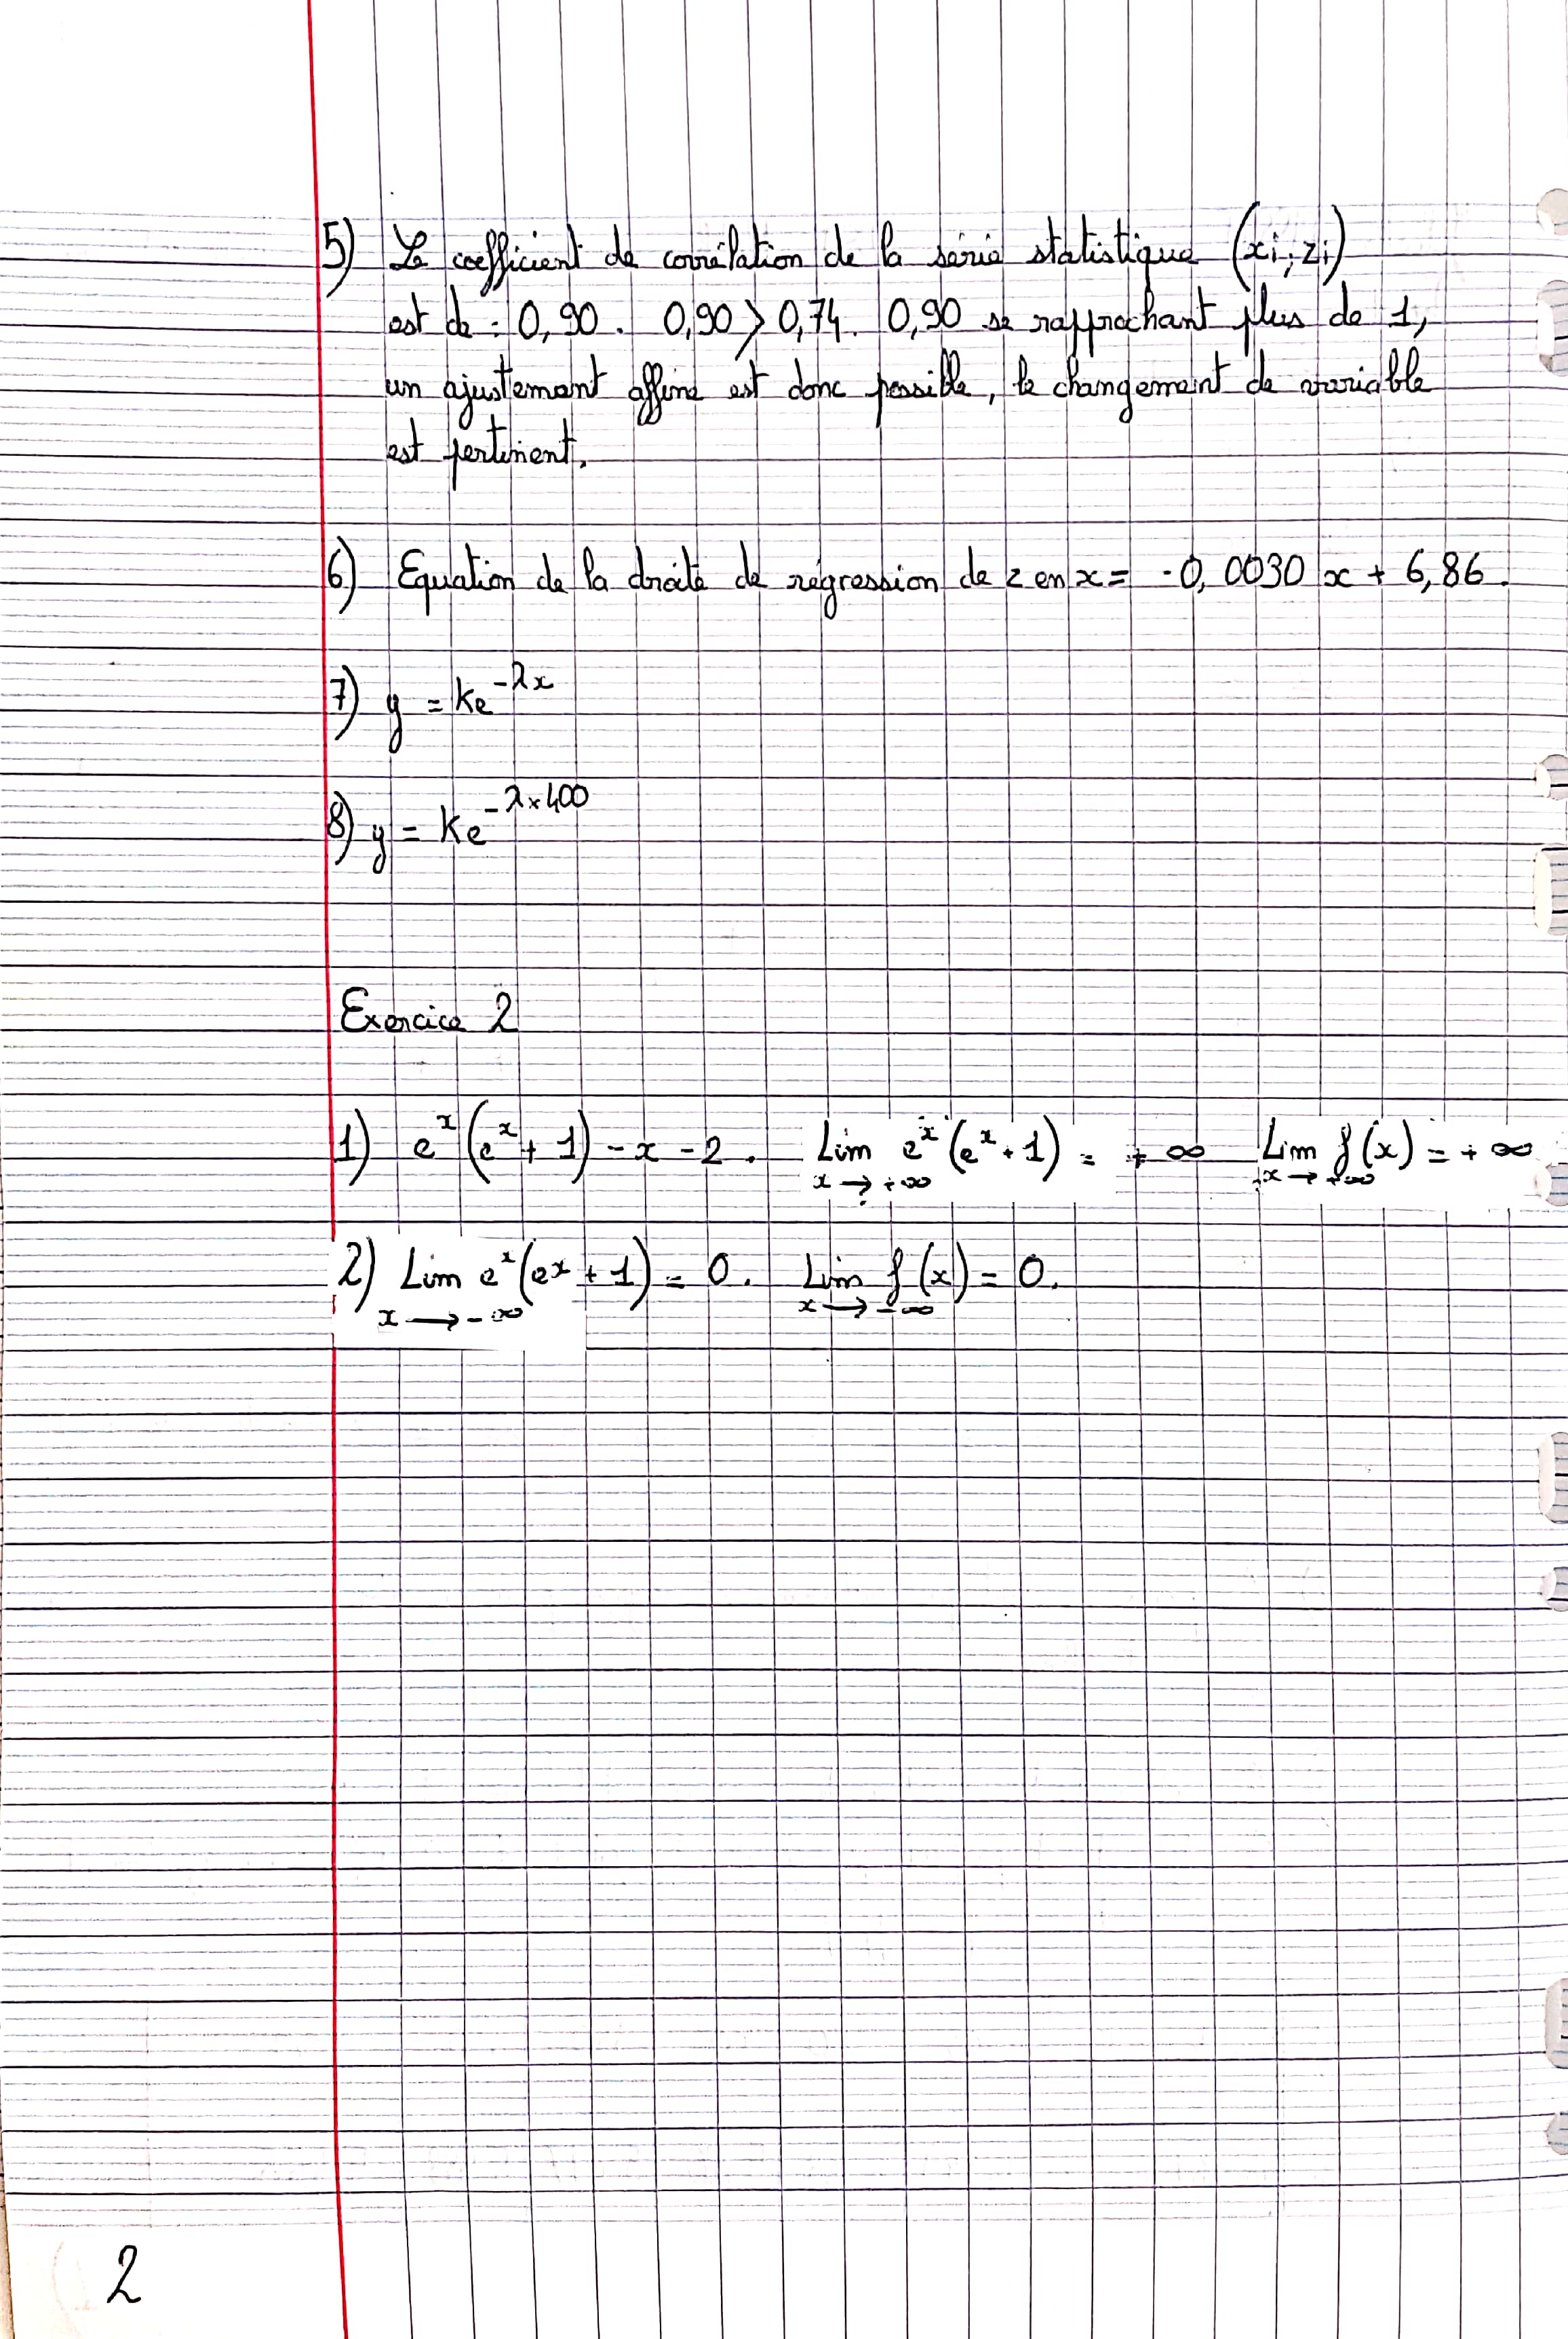 5) Le coefficient de corrélation de la série statistique (xi; zi)
est de : 0,90. 0,90 > 0,74. 0,90 se rapprochant plus de 1,
un ajustement affine est donc possible, le changement de variable
est pertinent.
6) Equation de la droite de régression de z en x = -0,0030 x + 6,86.
7) y = ke^{-λx}
8) y = Ke^{-λ×400}
Exercice 2
1) e^x (e^x + 1) - x - 2. Lim_{x→+∞} e^x (e^x + 1) = + ∞ Lim_{x→+∞} f(x) = + ∞
2) Lim_{x→-∞} e^x (e^x + 1) = 0. Lim_{x→-∞} f(x) = 0.
2